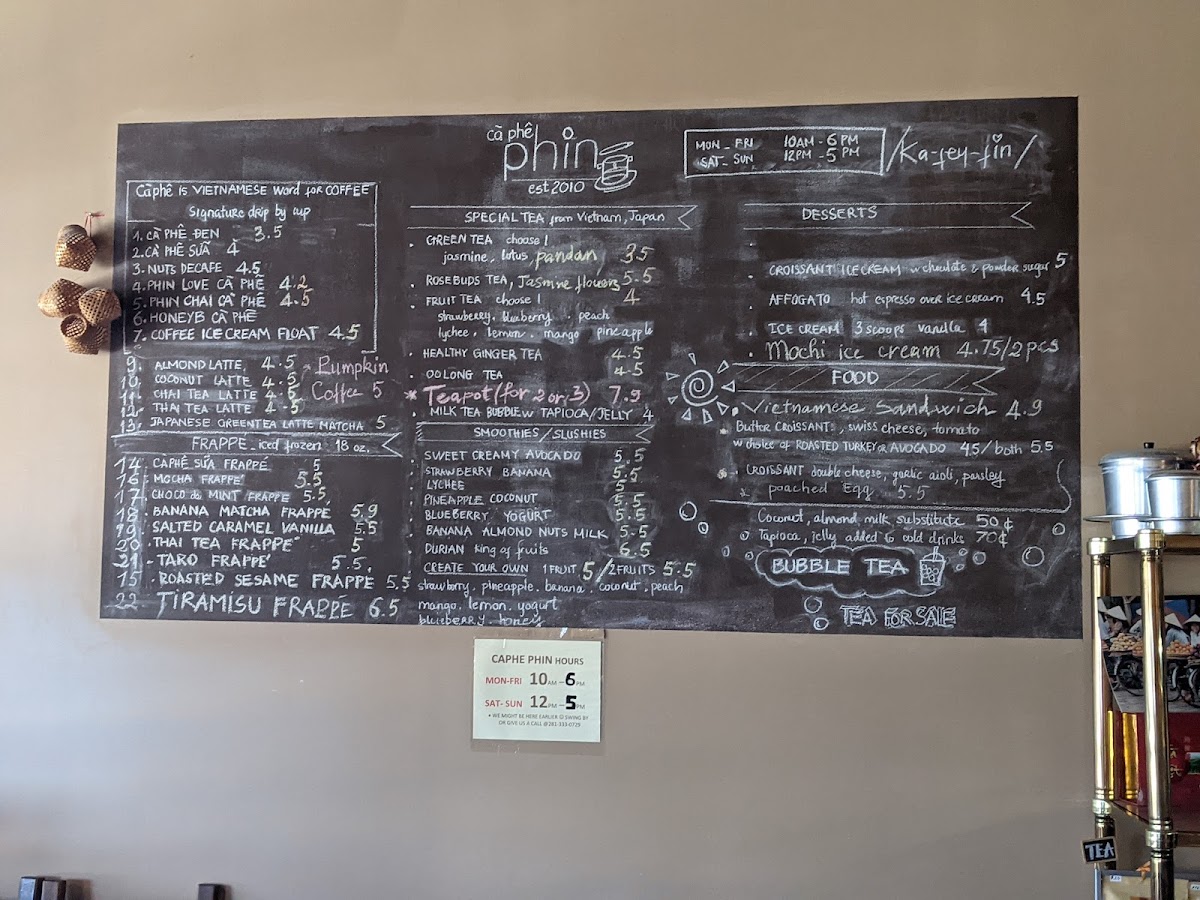 cà phê
phin
est 2010
MON - FRI 10AM - 6 PM
SAT - SUN 12PM - 5 PM
/Ka-fey-fin/
Càphê is VIETNAMESE word for COFFEE
Signature drip by cup
1. CÀ PHÊ ĐEN 3.5
2. CÀ PHÊ SỮA 4
3. NUTS DECAFE 4.5
4. PHIN LOVE CÀ PHÊ 4.2
5. PHIN CHAI CÀ PHÊ 4.5
6. HONEYB CÀ PHÊ
7. COFFEE ICE CREAM FLOAT 4.5
9. ALMOND LATTE 4.5
10. COCONUT LATTE 4.5
11. CHAI TEA LATTE 4.5
12. THAI TEA LATTE 4.5
13. JAPANESE GREENTEA LATTE MATCHA 5
Pumpkin
Coffee 5
FRAPPE iced frozen 18 oz.
14. CAPHÊ SỮA FRAPPÉ 5
16. MOCHA FRAPPE' 5.5
17. CHOCO de MINT FRAPPE 5.5
18. BANANA MATCHA FRAPPE 5.9
19. SALTED CARAMEL VANILLA 5.5
20 THAI TEA FRAPPE' 5
21 - TARO FRAPPE' 5.5.
15. ROASTED SESAME FRAPPE 5.5
22 TIRAMISU FRAPPÉ 6.5
SPECIAL TEA from Vietnam, Japan
. GREEN TEA choose 1
jasmine, lotus, pandan 3.5
. ROSEBUDS TEA, Jasmine flowers 5.5
. FRUIT TEA choose 1 4
strawberry. blueberry. peach
lychee. lemon. mango pineapple
. HEALTHY GINGER TEA 4.5
. OOLONG TEA 4.5
* Teapot (for 2 or 3) 7.9
. MILK TEA BUBBLE w TAPIOCA/JELLY 4
SMOOTHIES/SLUSHIES
SWEET CREAMY AVOCADO 5.5
STRAWBERRY BANANA 5.5
LYCHEE 5
PINEAPPLE COCONUT 5.5
BLUEBERRY YOGURT 5.5
BANANA ALMOND NUTS MILK 5.5
DURIAN king of fruits 6.5
CREATE YOUR OWN 1 FRUIT 5 / 2 FRUITS 5.5
strawberry. pineapple. banana. coconut. peach
mango. lemon. yogurt
blueberry. honey
DESSERTS
. CROISSANT ICE CREAM w choclate & powder sugar 5
. AFFOGATO hot espresso over ice cream 4.5
. ICE CREAM 3 scoops vanilla 4
. Mochi ice cream 4.75/2 pcs
FOOD
. Vietnamese Sandwich 4.9
. Butter CROISSANTS, swiss cheese, tomato
w choice of ROASTED TURKEY or AVOCADO 4.5 / both 5.5
. CROISSANT double cheese, garlic aioli, parsley
poached Egg. 5.5
Coconut, almond milk substitute 50¢
Tapioca, jelly added to cold drinks 70¢
BUBBLE TEA
TEA FOR SALE
CAPHE PHIN HOURS
MON-FRI 10AM - 6PM
SAT- SUN 12PM - 5PM
• WE MIGHT BE HERE EARLIER ☺ SWING BY
OR GIVE US A CALL @281-333-0729
TEA